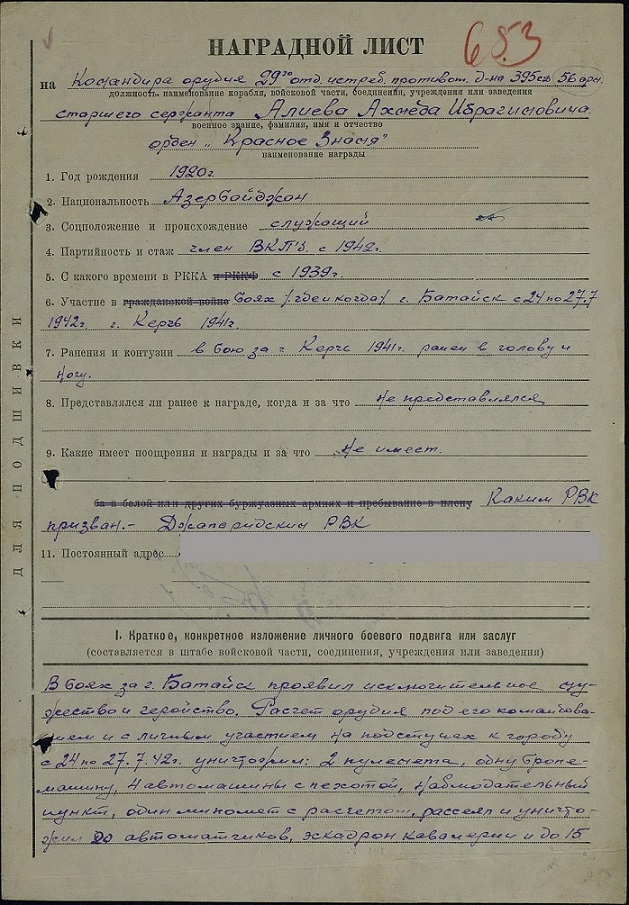 683
НАГРАДНОЙ ЛИСТ
на Командира орудия 29го отд. истреб. противот. д-на 395 сд 56 арм.
должность, наименование корабля, войсковой части, соединения, учреждения или заведения
старшего сержанта Алиева Ахмеда Ибрагимовича.
военное звание, фамилия, имя и отчество
орден „Красное Знамя"
наименование награды
1. Год рождения 1920г
2. Национальность Азербайджан
3. Соцположение и происхождение служащий
4. Партийность и стаж член ВКПб. с 1942г.
5. С какого времени в РККА и РККФ с 1939г.
6. Участие в гражданской войне боях /где и когда/ г. Батайск с 24 по 27.7
1942г. г. Керчь 1941г.
7. Ранения и контузии в бою за г Керчь 1941г. ранен в голову и
ногу.
8. Представлялся ли ранее к награде, когда и за что Не представлялся
9. Какие имеет поощрения и награды и за что Не имеет.
ба в белой или других буржуазных армиях и пребывание в плену Каким РВК
призван.- Джапаридский РВК
11. Постоянный адрес
ДЛЯ ПОДШИВКИ
I. Краткое, конкретное изложение личного боевого подвига или заслуг
(составляется в штабе войсковой части, соединения, учреждения или заведения)
В боях за г. Батайск проявил исключительное му-
жество и геройство. Расчет орудия под его командова-
нием и с личным участием на подступах к городу
с 24 по 27.7.42г. уничтожил: 2 пулемета, одну броне-
машину, 4 автомашины с пехотой, наблюдательный
пункт, один миномет с расчетом, рассеял и уничто-
жил до автоматчиков, эскадрон кавалерии и до 15